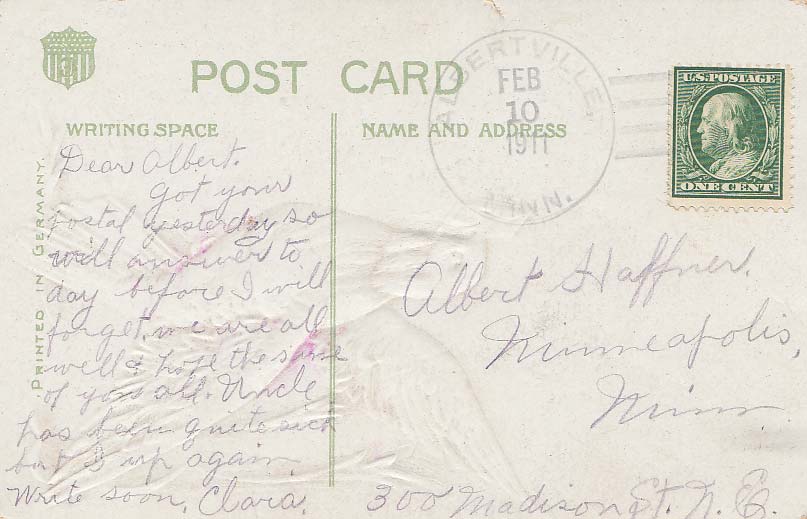 POST CARD
WRITING SPACE
NAME AND ADDRESS
PRINTED IN GERMANY.
ALBERTVILLE,
FEB
10
1911
MINN.
U.S. POSTAGE
ONE CENT
Dear Albert.
Got your
postal yesterday so
will answer to
day before I will
forget. we are all
well & hope the same
of you all. Uncle
has been quite sick
but is up again
Write soon, Clara.
Albert Haffner.
Minneapolis,
Minn.
300 Madison St. N.E.